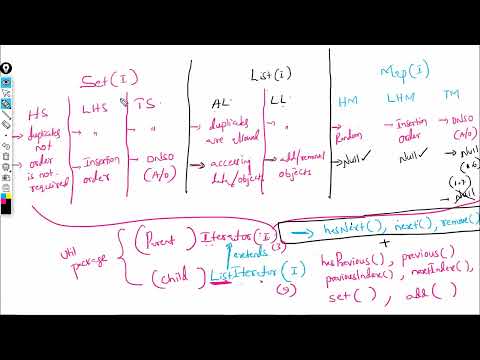 Set(I)
List(I)
Map(I)
HS
LHS
TS
AL
LL
HM
LHM
TM
→ duplicates not
"
"
→ duplicates are allowed
"
→ Random
→ Insertion order
→ DNSO (A/O)
→ order is not required
Insertion order
DNSO (A/O)
→ accessing data/objects
→ add/removal objects
→ Null ✓
Null ✓
→ Null ✓
(1.6)
(1.7)
→ Null
util package
(Parent) Iterator(I)
(3)
→ hasNext(), next(), remove()
extends
+
(child) ListIterator(I)
(9)
hasPrevious(), previous()
previousIndex(), nextIndex(),
set( ), add( )